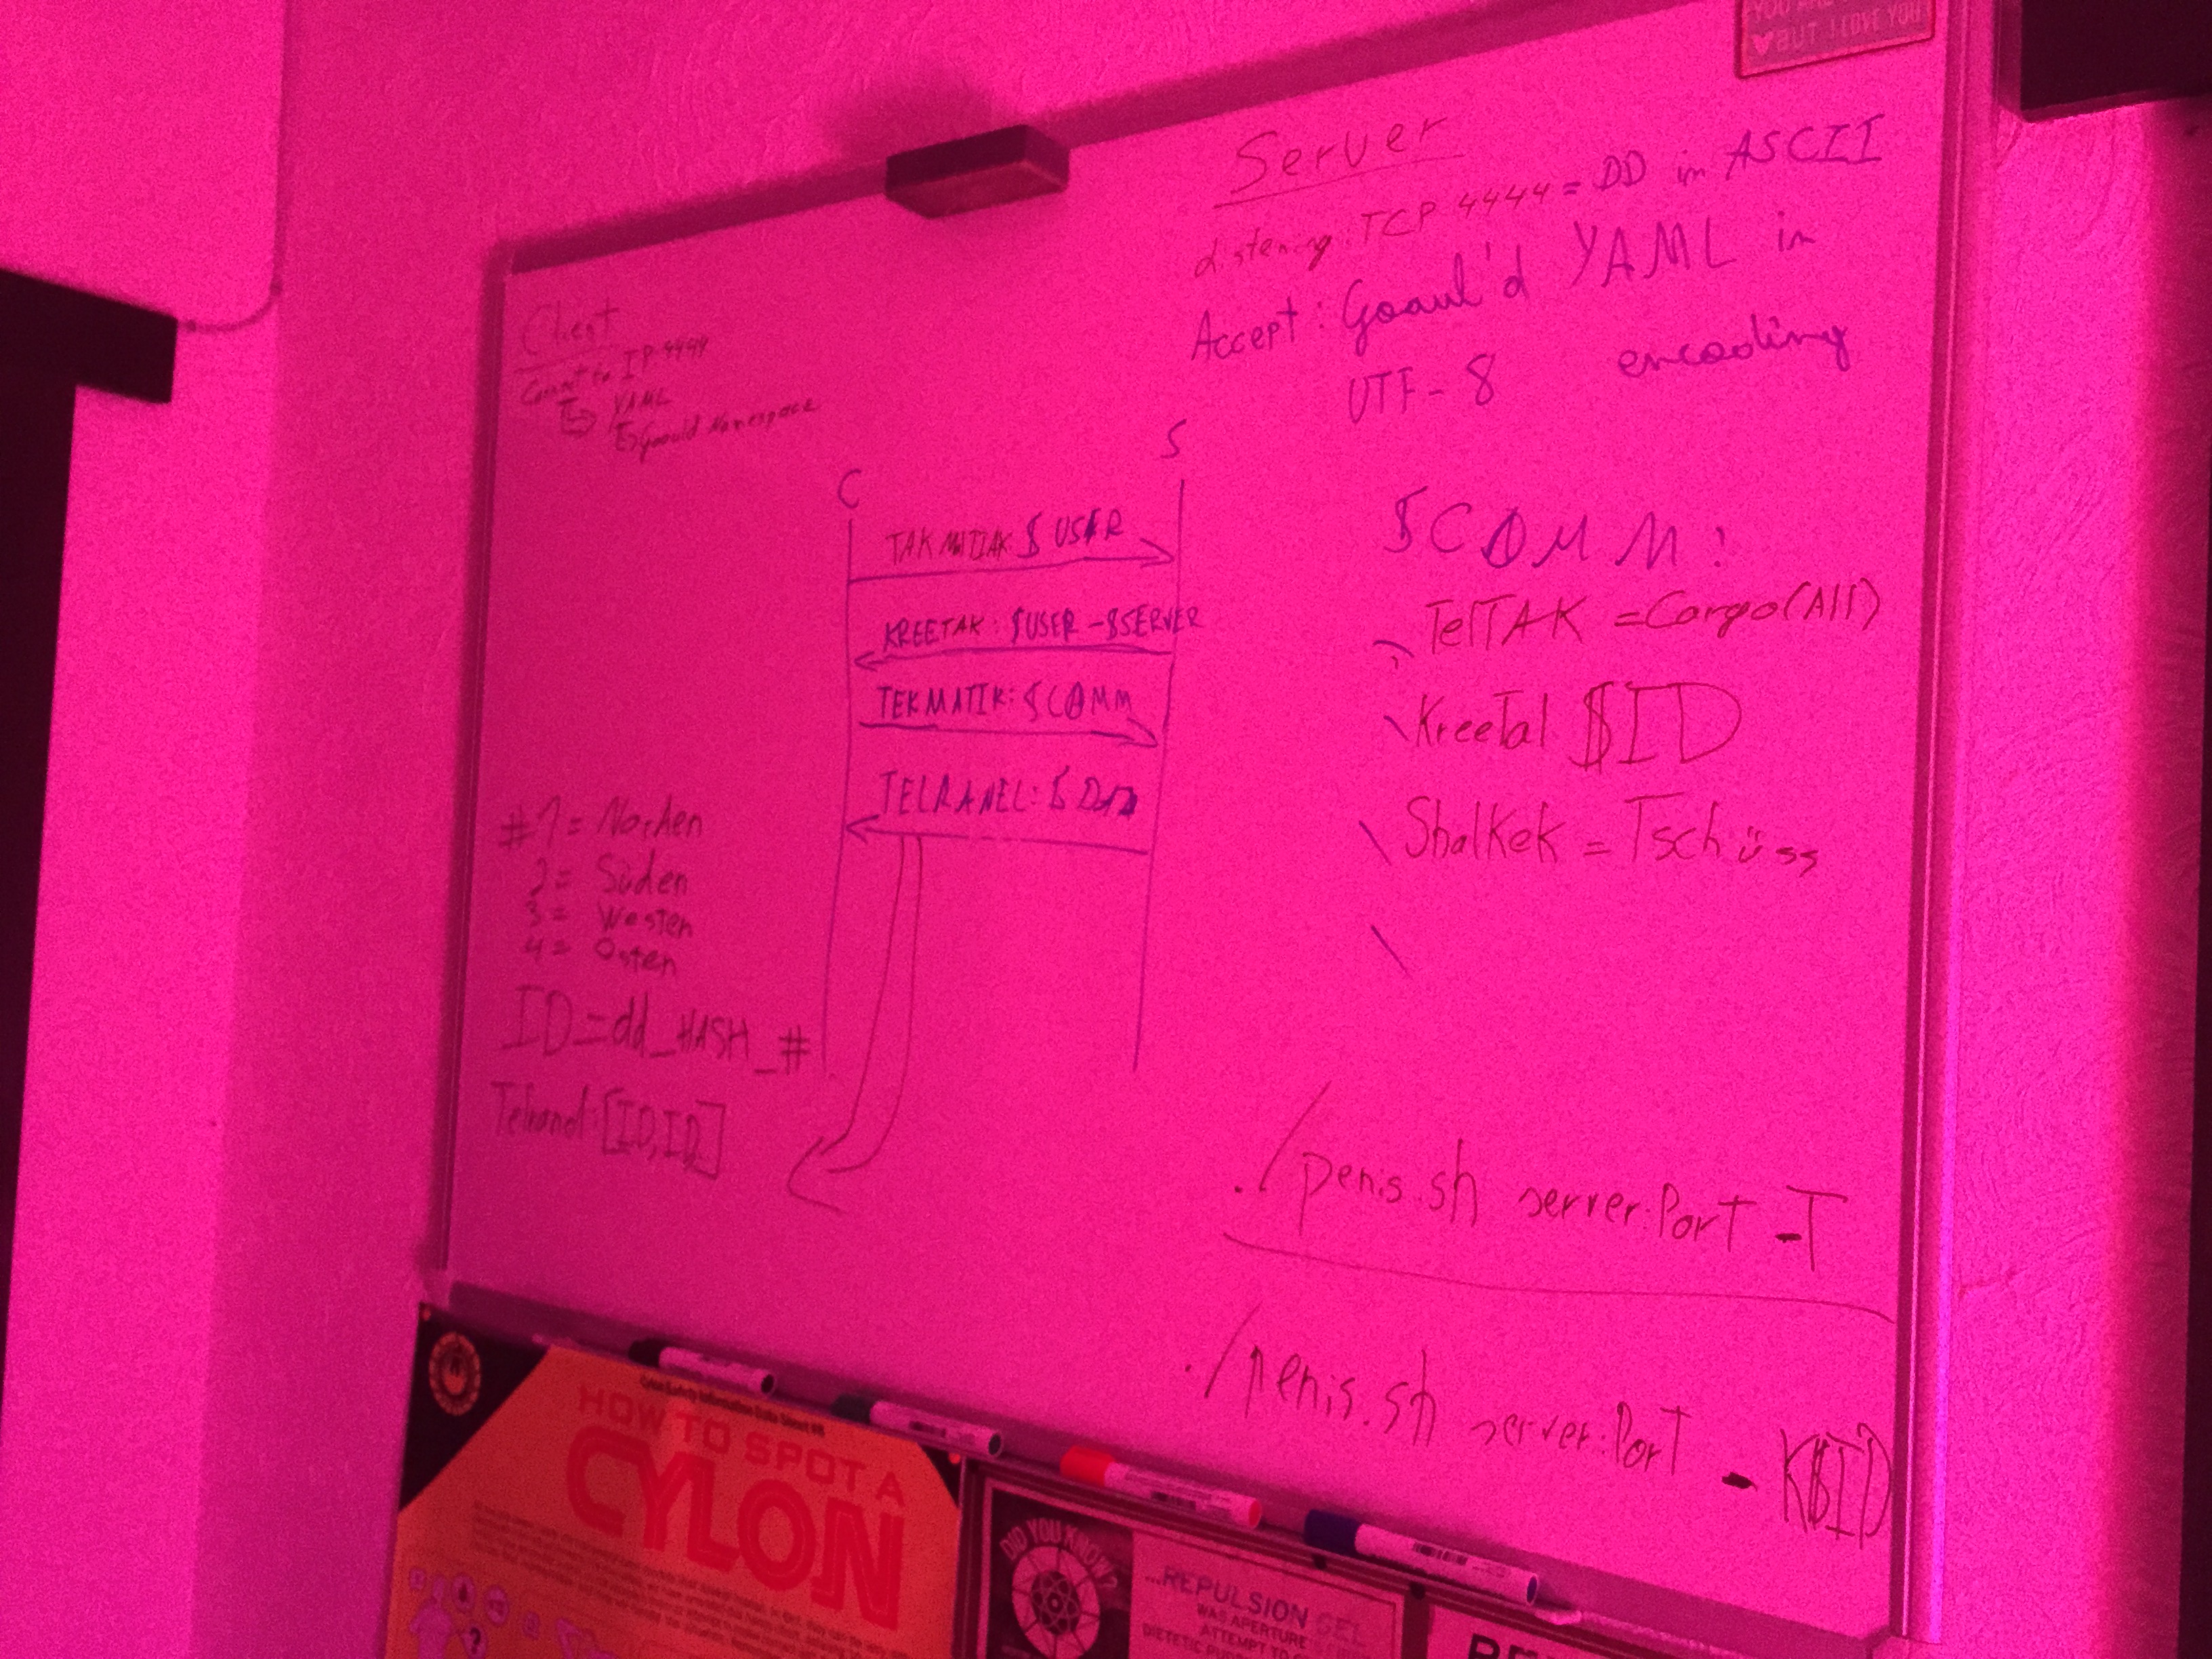 YOU ARE
BUT I LOVE YOU
Server
Listening: TCP 4444 = DD in ASCII
Accept: Goaul'd YAML in
UTF-8 encoding
Client
Connect to IP 4444
YAML
Goauld Namespace
C S
TAKMATIAK $USER
KREETAK: $USER-$SERVER
TEKMATIK: $COMM
TELRANEL:
$COMM:
TelTAK = Cargo(All)
KreeTal $ID
ShalKek = Tschüss
#1 = Norden
2 = Süden
3 = Westen
4 = Osten
ID=dd_HASH_#
Telranel: [ID,ID,]
./penis.sh server:PorT -T
./penis.sh server:PorT - K$ID
HOW TO SPOT A
CYLON
DID YOU KNOW?
...REPULSION GEL
WAS APERTURE
ATTEMPT TO
DIETETIC PUDD